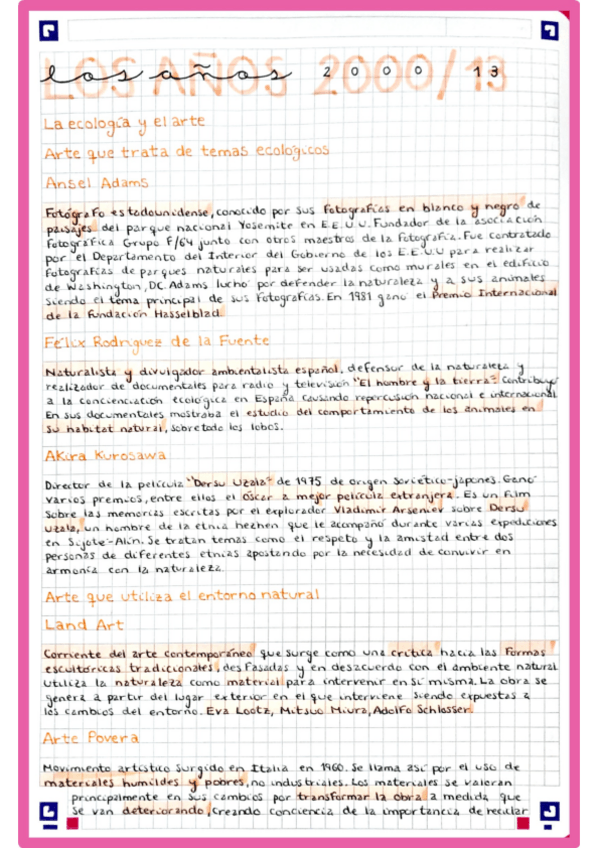 LOS AÑOS 2000/13
los años 2000 13
La ecología y el arte
Arte que trata de temas ecológicos
Ansel Adams
Fotógrafo estadounidense, conocido por sus fotografías en blanco y negro de
paisajes del parque nacional Yosemite en E.E.U.U. Fundador de la asociación
fotográfica Grupo F/64 junto con otros maestros de la fotografía. Fue contratado
por el Departamento del Interior del Gobierno de los E.E.U.U para realizar
fotografías de parques naturales para ser usadas como murales en el edificio
de Washington, DC. Adams luchó por defender la naturaleza y a sus animales
siendo el tema principal de sus fotografías. En 1981 ganó el Premio Internacional
de la Fundación Hasselblad.
Félix Rodríguez de la Fuente
Naturalista y divulgador ambientalista español, defensor de la naturaleza y
realizador de documentales para radio y televisión "El hombre y la tierra" Contribuyó
a la concienciación ecológica en España causando repercusión nacional e internacional
En sus documentales mostraba el estudio del comportamiento de los animales en
su habitat natural, sobretodo los lobos.
Akira Kurosawa
Director de la película "Dersu Uzala" de 1975 de origen soviético-japones. Ganó
varios premios, entre ellos el Oscar a mejor película extranjera. Es un film
sobre las memorias escritas por el explorador Vladimir Arseniev sobre Dersu
Uzala, un hombre de la etnia hezhen que le acompañó durante varias expediciones
en Sijote-Alin. Se tratan temas como el respeto y la amistad entre dos
personas de diferentes etnias apostando por la necesidad de convivir en
armonía con la naturaleza.
Arte que utiliza el entorno natural
Land Art
Corriente del arte contemporáneo que surge como una crítica hacia las formas
escultóricas tradicionales, desfasadas y en desacuerdo con el ambiente natural
Utiliza la naturaleza como material para intervenir en sí misma. La obra se
genera a partir del lugar exterior en el que interviene siendo expuestas a
los cambios del entorno. Eva Lootz, Mitsuo Miura, Adolfo Schlosser.
Arte Povera
Movimiento artístico surgido en Italia en 1960. Se llama así por el uso de
materiales humildes y pobres, no industriales. Los materiales se valoran
principalmente en sus cambios por transformar la obra a medida que
se van deteriorando, Creando conciencia de la importancia de reciclar